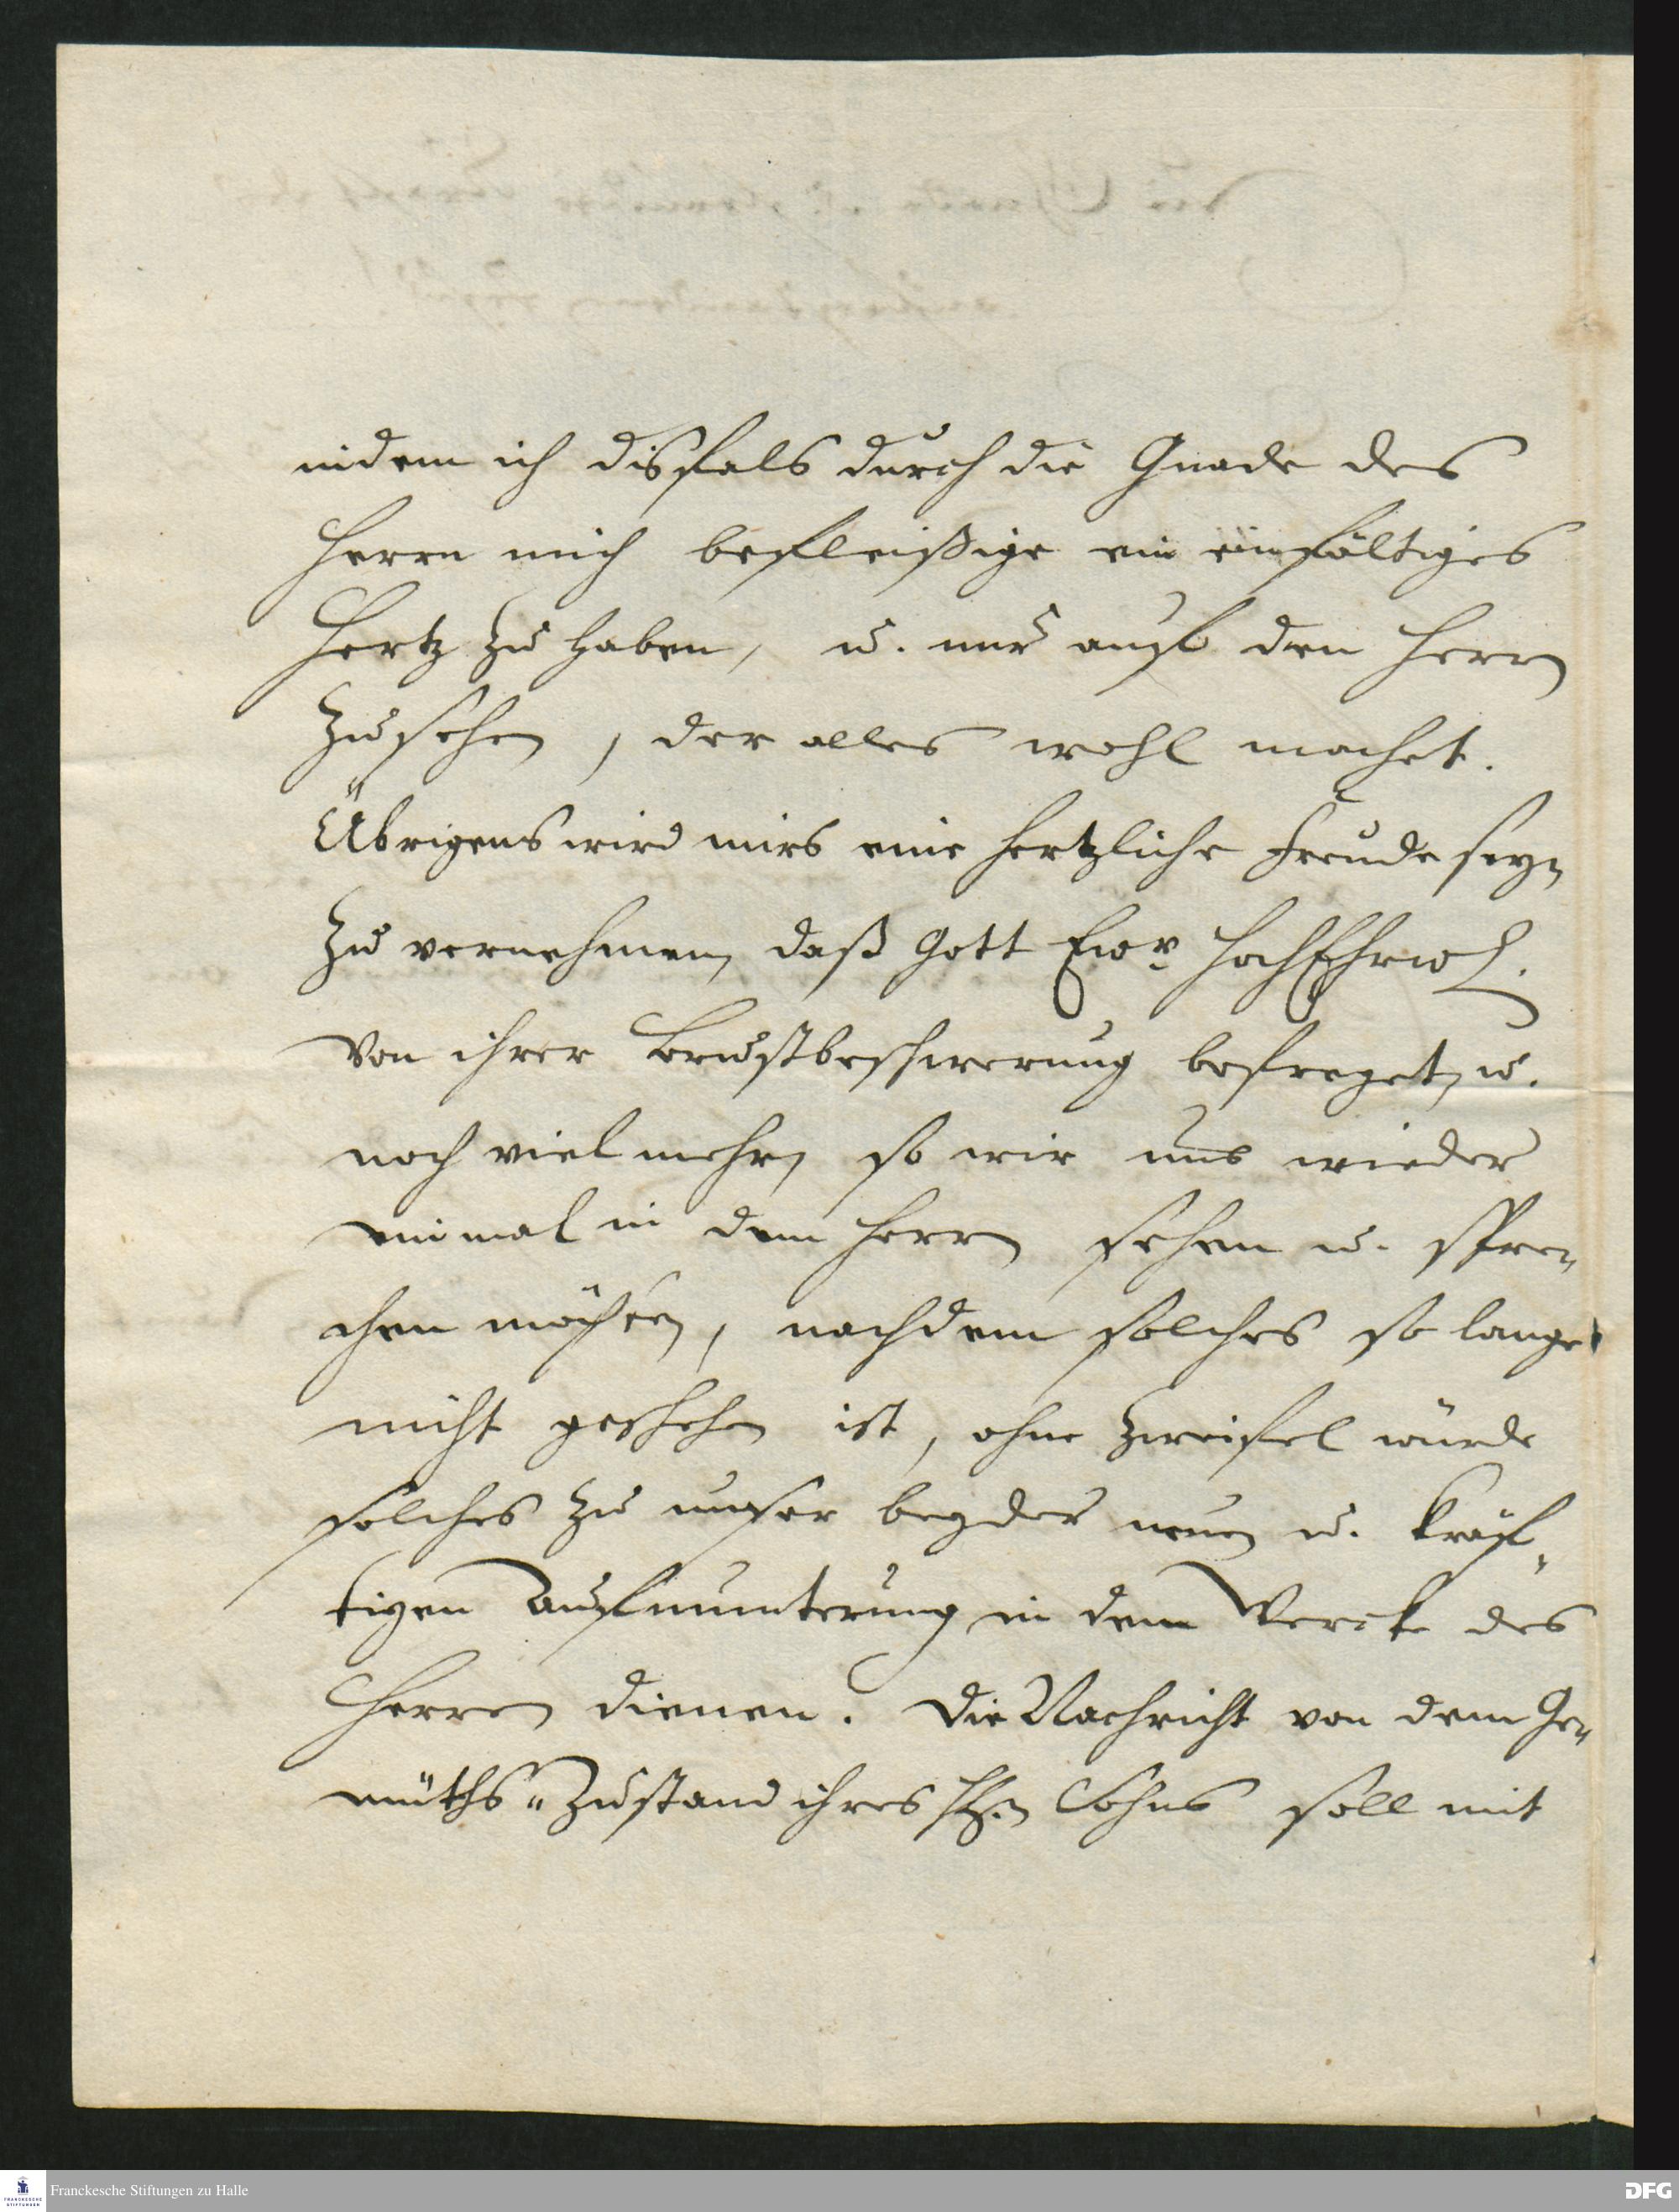 indem ich disfals durch die Gnade des
Herrn mich befleißige ein einfältiges
Hertz zu haben, u. nur auf den Herrn
zusehen, der alles wohl machet.
Übrigens wird mirs eine hertzliche Freude seyn
zu vernehmen, daß Gott Ewr HochEhrw.
von ihrer Brustbeschwerung befreyet, u.
noch viel mehr, so wir uns wieder
einmal in dem Herrn sehen u. spre-
chen möchten, nachdem solches so lange
nicht geschehen ist, ohne Zweifel würde
solches zu unser beyder neuen u. kräf-
tigen Aufmunterung in dem Wercke des
Herren dienen. Die Nachricht von dem Ge-
müths-Zustand ihres Hn. Sohns soll mit
Franckesche Stiftungen zu Halle
FRANCKESCHE STIFTUNGEN
DFG